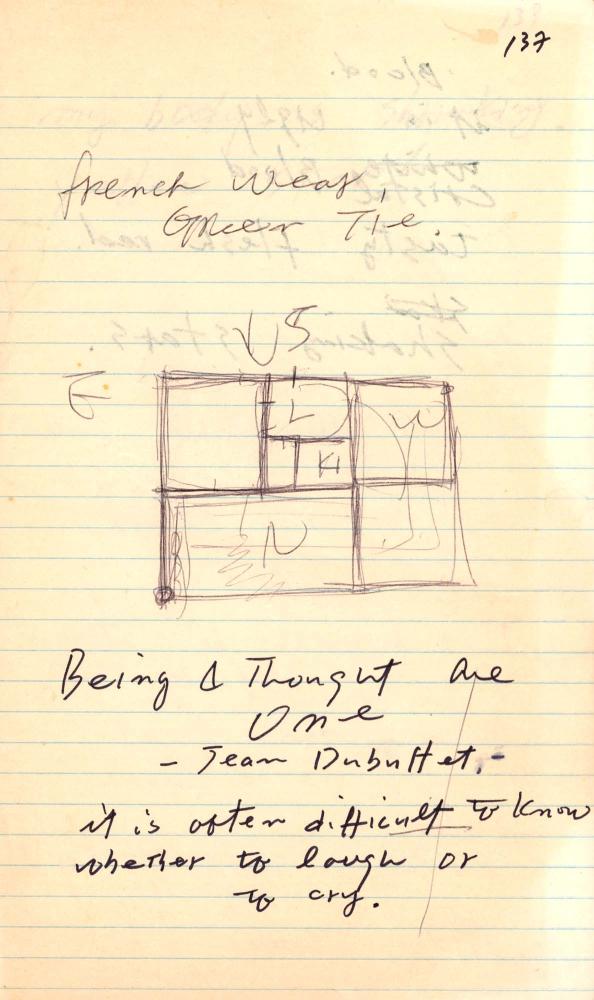 137
french Wear,
Green Tie.
US
E
L
W
KI
N
Being & Thought are
One
- Jean Dubuffet. -
it is often difficult to know
whether to laugh or
to cry.